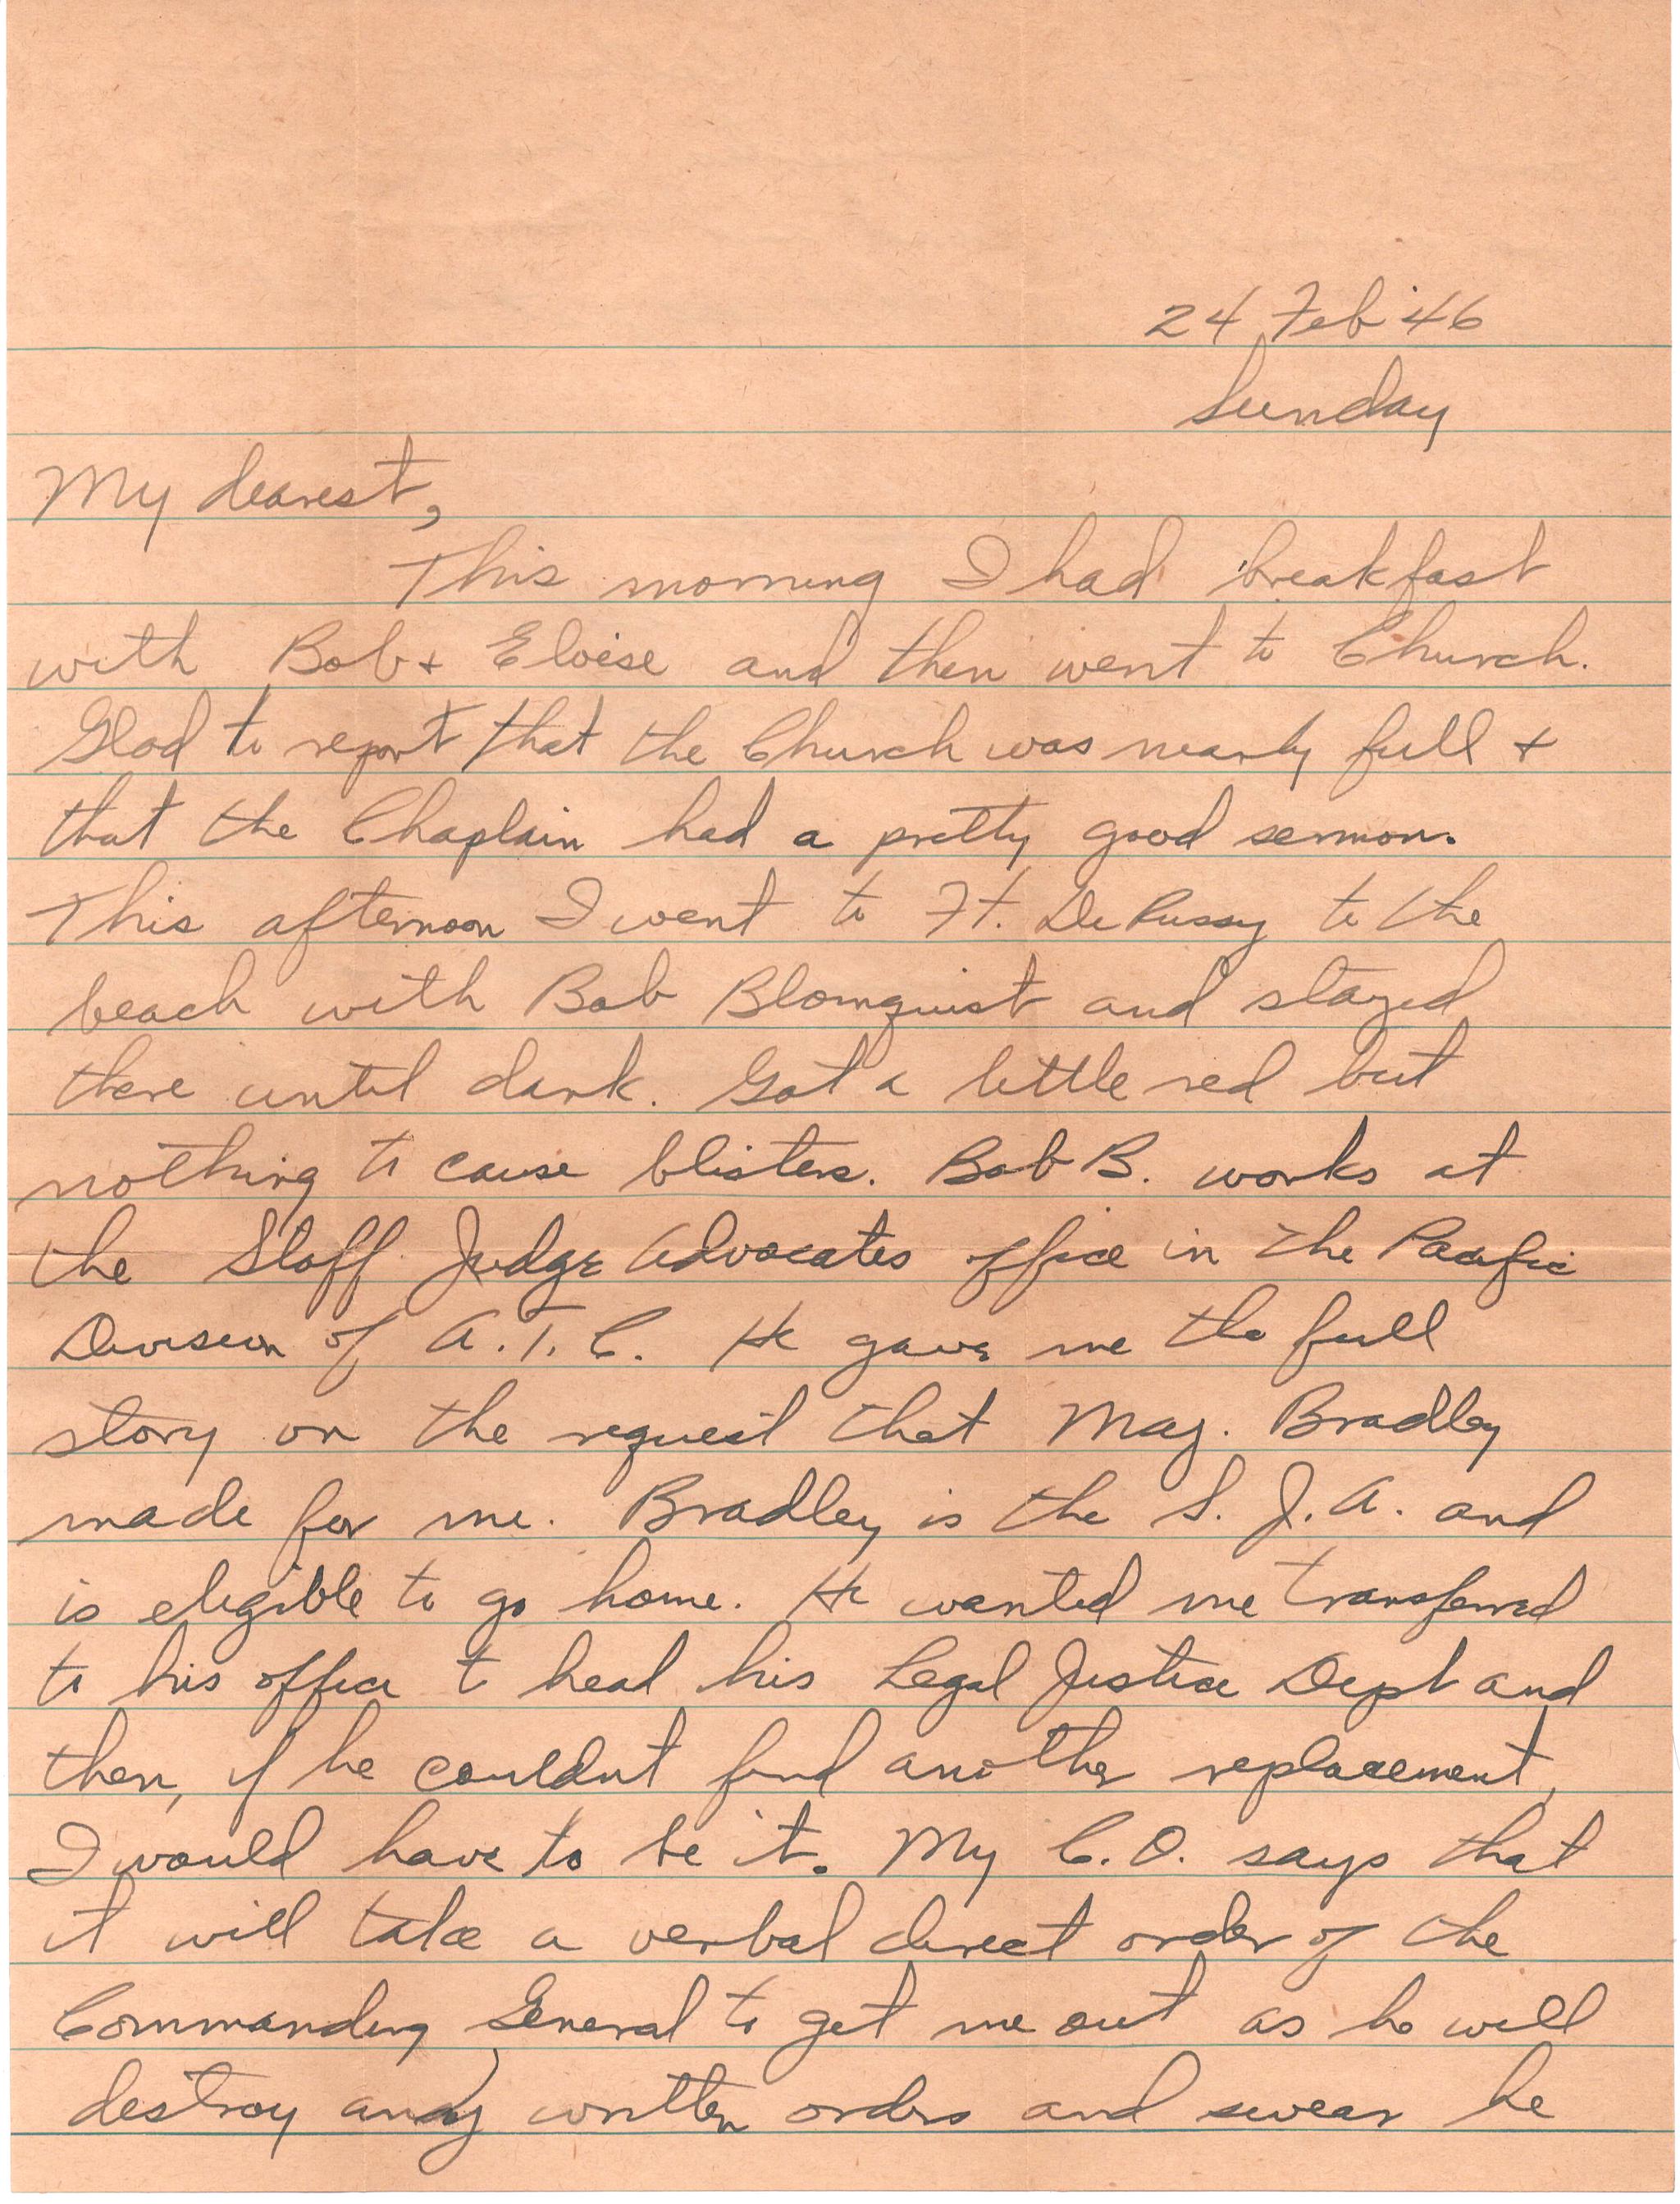 24 Feb '46
Sunday
My dearest,
This morning I had breakfast
with Bob + Eloise and then went to Church.
Glad to report that the Church was nearly full +
that the Chaplain had a pretty good sermon.
This afternoon I went to Ft. DeRussy to the
beach with Bob Blomquist and stayed
there until dark. Got a little red but
nothing to cause blisters. Bob B. works at
the Staff Judge Advocates office in the Pacific
Division of A.T.C. He gave me the full
story on the request that Maj. Bradley
made for me. Bradley is the S.J.A. and
is eligible to go home. He wanted me transferred
to his office to head his Legal Justice Dept and
then, if he couldnt find another replacement,
I would have to be it. My C.O. says that
it will take a verbal direct order of the
Commanding General to get me out as he will
destroy any written orders and swear he